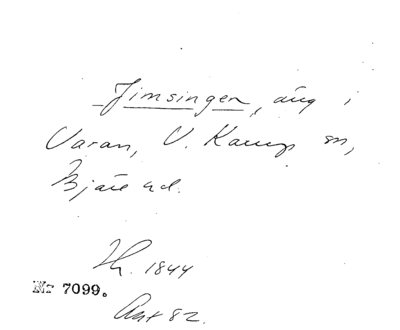 Jimsingen, äng i
Varan, V. Karup sn,
Bjäre hd.
Th. 1844
Nr 7099.
Ant 82.